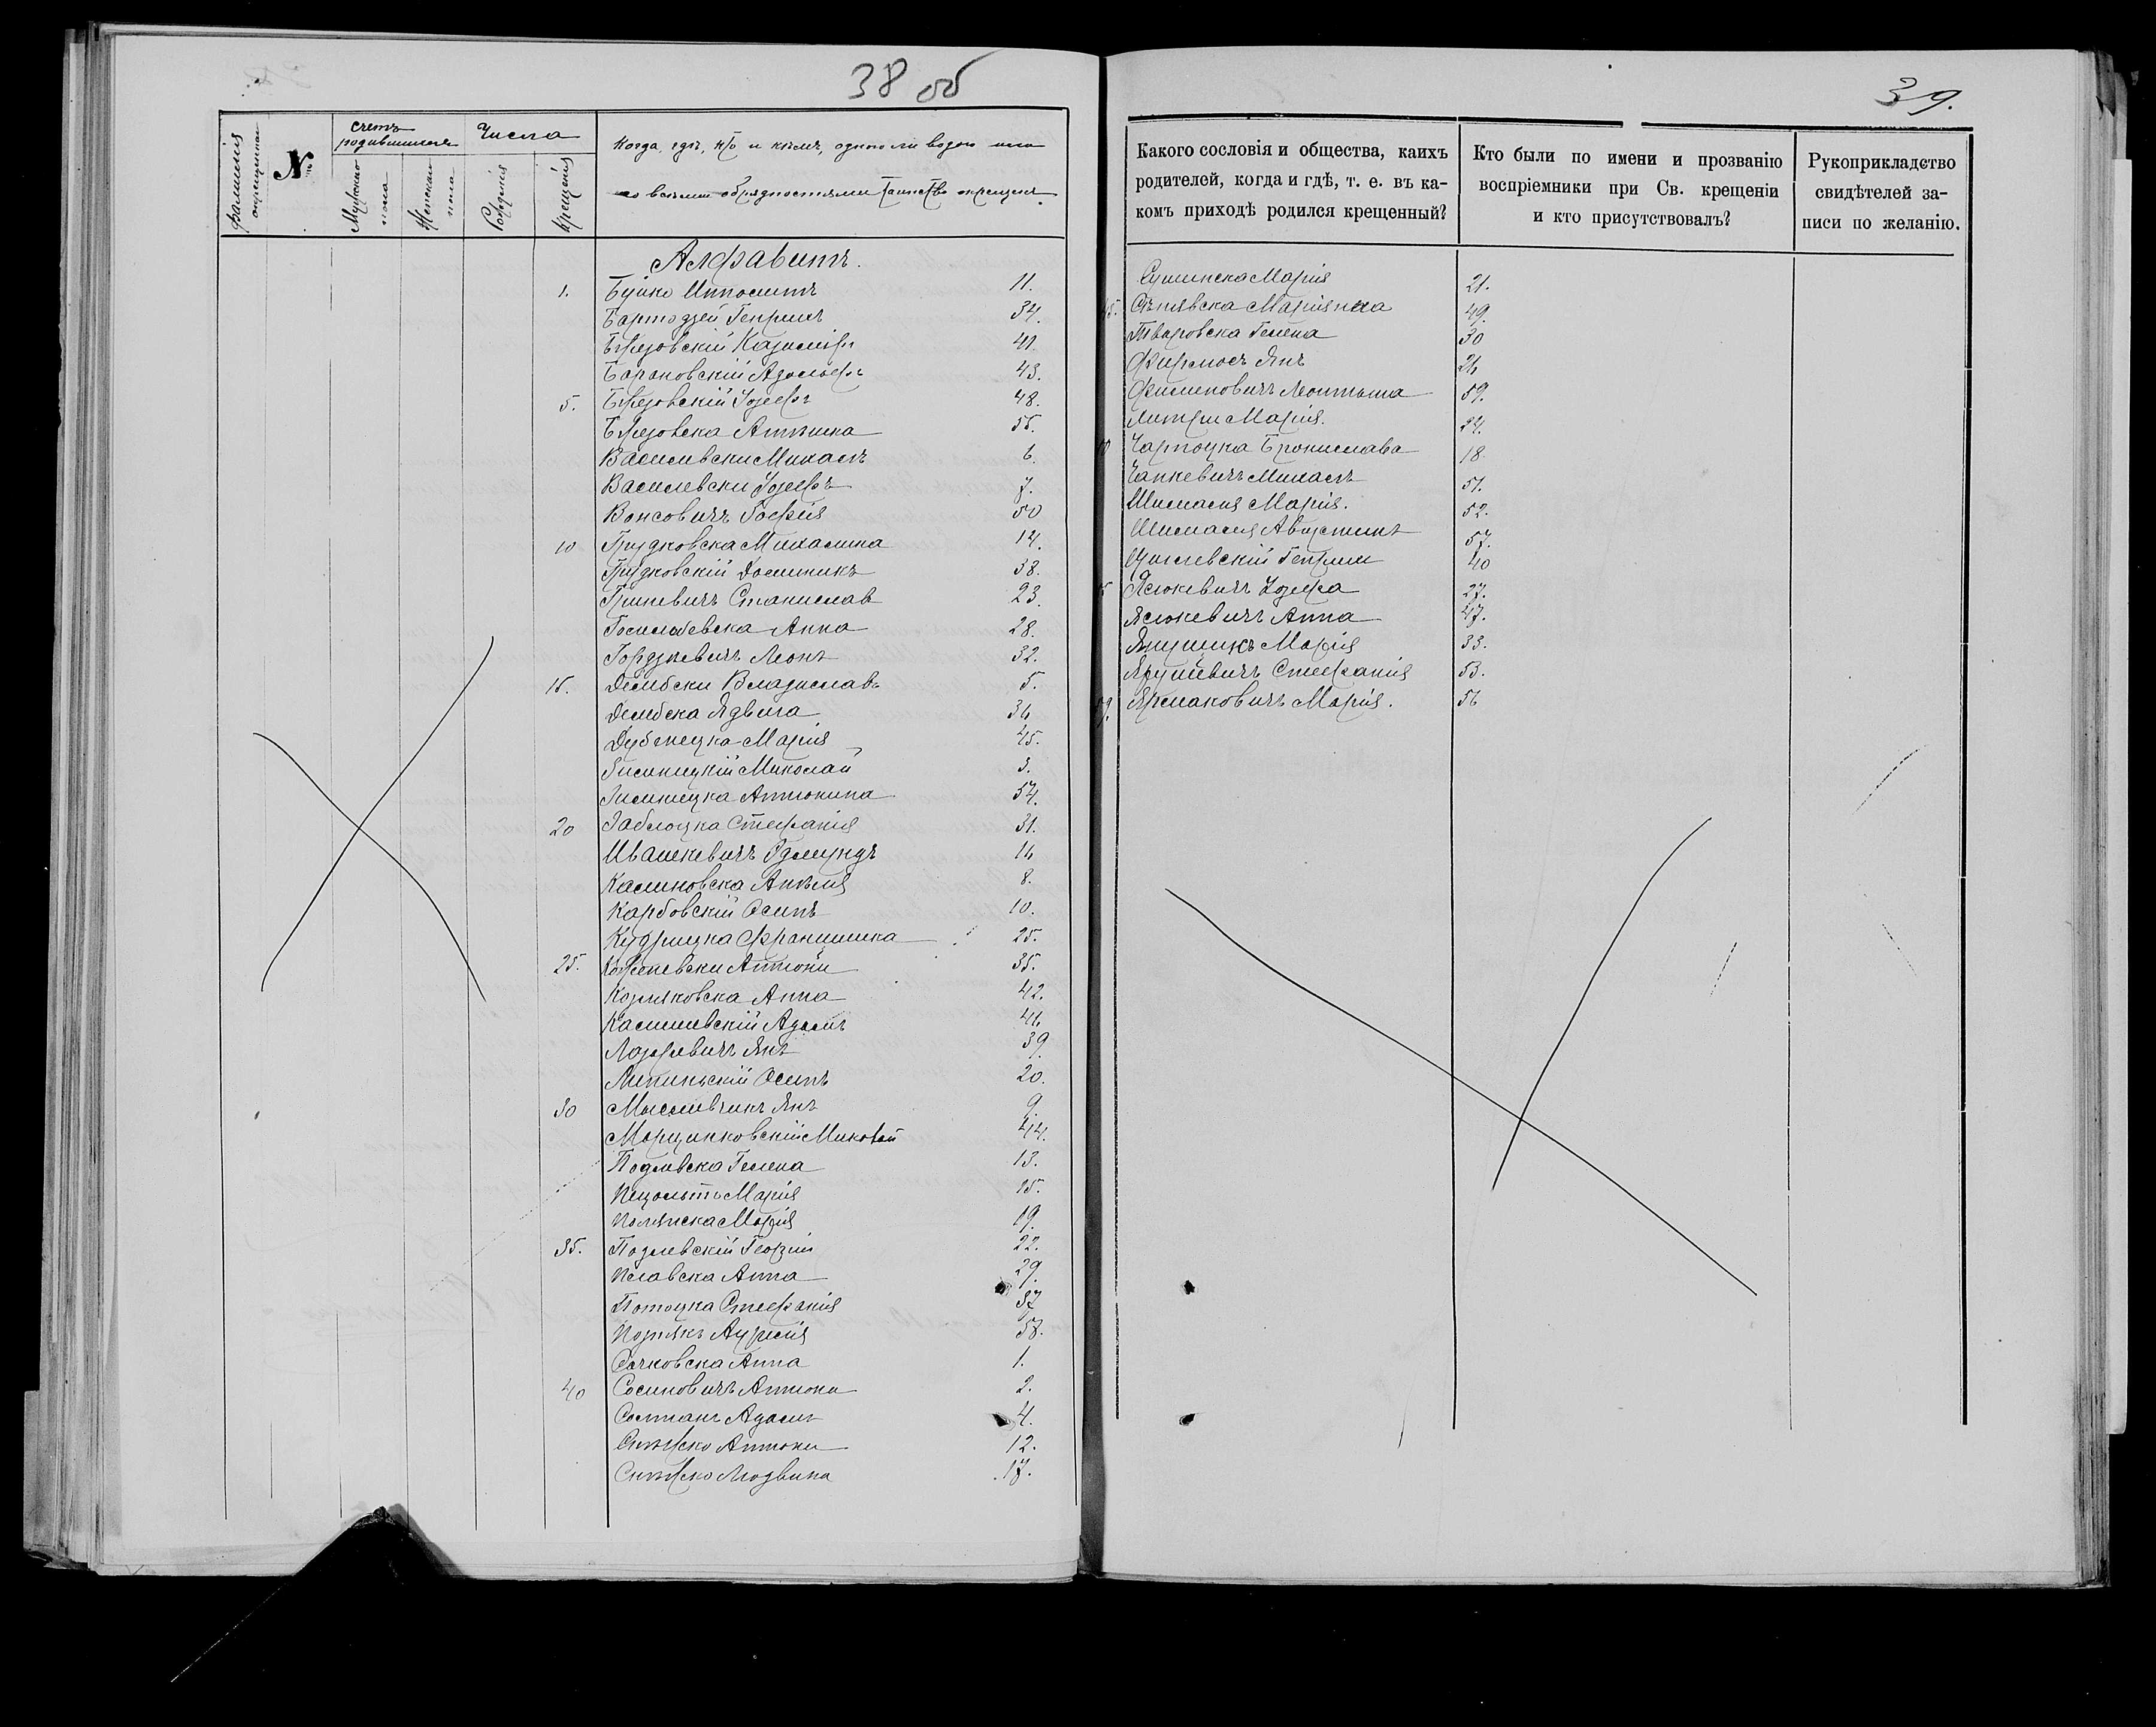 38 об
фамилія окрещеннаго
№
счетъ родившихся
Мужскаго пола
Женскаго пола
Числа
Рожденія
Крещенія
Когда, гдѣ, кто и кѣмъ, одною ли водою или
со всѣми обрядностями таинства крещенъ.
Алфавитъ.
1. Буйко Ипполитъ 11.
Бартодзей Генрихъ 34.
Бержовскій Казиміръ 41.
Барановскій Адольфъ 43.
5. Бержовскій Юзефъ 48.
Бержовска Антонина 55.
Василевски Михалъ 6.
Василевски Юзефъ 7.
Вонсовичъ Зофія 50
10 Грудковска Михалина 14.
Грудковскій Доминикъ 38.
Гриневичъ Станиславъ 23.
Анна 28.
Гордзевичъ Леонъ 32.
15. Дембски Владиславъ 5.
Дембска Ядвига 36
Марія 45.
Зимницкій Миколай 3.
Зимницка Антонина 54.
20 Заблоцка Стефанія 31.
Ивашкевичъ Эдмундъ 16
Калиновска Анеля 8.
Карбовскій Осипъ 10.
Кудрицка Францишка 25.
25. Антони 35.
Козляковска Анна 42.
Адамъ 46
Лазаревичъ Янъ 39.
Липинскій Осипъ 20.
30 Мысливчикъ Янъ 9.
Марцинковскій Миколай 44.
Подлевска Гелена 13.
Марія 15.
Марія 19.
35. Подлевскій Георгій 22.
Анна 29.
Потоцка Стефанія 37
Познякъ 58.
Сачковска Анна 1.
40 Сосиновичъ Антони 2.
Солтанъ Адамъ 4.
Антони 12.
Людвика 17.
39.
Какого сословія и общества, каихъ
родителей, когда и гдѣ, т. е. въ ка-
комъ приходѣ родился крещенный?
Кто были по имени и прозванію
воспріемники при Св. крещеніи
и кто присутствовалъ?
Рукоприкладство
свидѣтелей за-
писи по желанію.
Сушинска Марія 21.
45. Маріянна 49.
Тваровска Гелена 30
Янъ 26
Филиповичъ Леонтына 59.
Марія. 24.
50 Чартоцка Брониславa 18.
Чапкевичъ Михалъ 51.
Марія. 52.
Августинъ 57.
Генрихъ 40
55 Ясюкевичъ Юзефа 27.
Ясюкевичъ Анна 47.
Янушикъ Марія 33.
Ярушевичъ Стефанія 53.
59. Ярмаковичъ Марія. 56